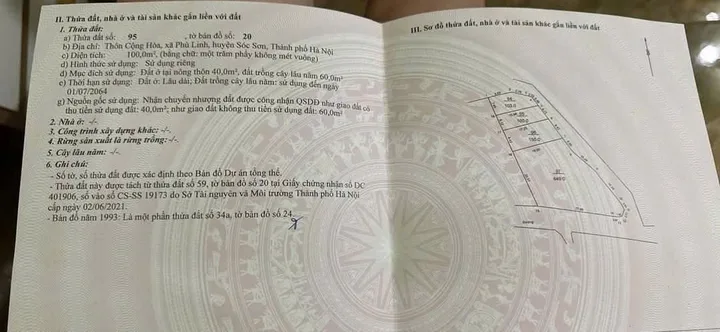 II. Thửa đất, nhà ở và tài sản khác gắn liền với đất
1. Thửa đất:
a) Thửa đất số: 95 , tờ bản đồ số: 20
b) Địa chỉ: Thôn Cộng Hòa, xã Phù Linh, huyện Sóc Sơn, Thành phố Hà Nội
c) Diện tích: 100,0m², (bằng chữ: một trăm phẩy không mét vuông)
d) Hình thức sử dụng: Sử dụng riêng
đ) Mục đích sử dụng: Đất ở tại nông thôn 40,0m², đất trồng cây lâu năm 60,0m²
e) Thời hạn sử dụng: Đất ở: Lâu dài; Đất trồng cây lâu năm: sử dụng đến ngày
01/07/2064
g) Nguồn gốc sử dụng: Nhận chuyển nhượng đất được công nhận QSDĐ như giao đất có
thu tiền sử dụng đất: 40,0m²; như giao đất không thu tiền sử dụng đất: 60,0m²
2. Nhà ở: -/-.
3. Công trình xây dựng khác: -/-.
4. Rừng sản xuất là rừng trồng: -/-.
5. Cây lâu năm: -/-.
6. Ghi chú:
- Số tờ, số thửa đất được xác định theo Bản đồ Dự án tổng thể.
- Thửa đất này được tách từ thửa đất số 59, tờ bản đồ số 20 tại Giấy chứng nhận số DC
401906, số vào sổ CS-SS 19173 do Sở Tài nguyên và Môi trường Thành phố Hà Nội
cấp ngày 02/06/2021.
- Bản đồ năm 1993: Là một phần thửa đất số 34a, tờ bản đồ số 24
III. Sơ đồ thửa đất, nhà ở và tài sản khác gắn liền với đất